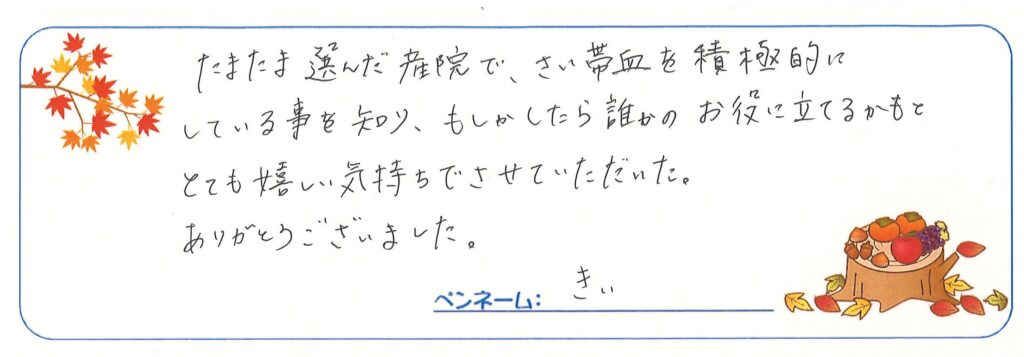 たまたま選んだ産院で、さい帯血を積極的に
している事を知り、もしかしたら誰かのお役に立てるかもと
とても嬉しい気持ちでさせていただいた。
ありがとうございました。
ペンネーム： きい